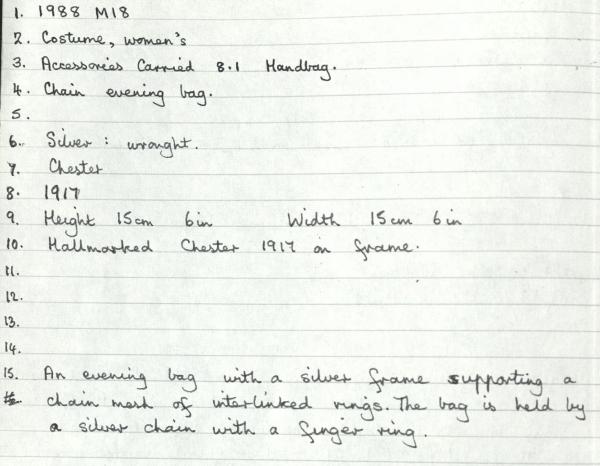 1. 1988 M18
2. Costume, women's
3. Accessories Carried 8.1 Handbag.
4. Chain evening bag.
5.
6. Silver : wrought.
7. Chester
8. 1917
9. Height 15cm 6in Width 15cm 6in
10. Hallmarked Chester 1917 on frame.
11.
12.
13.
14.
15. An evening bag with a silver frame supporting a
chain mesh of interlinked rings. The bag is held by
a silver chain with a finger ring.